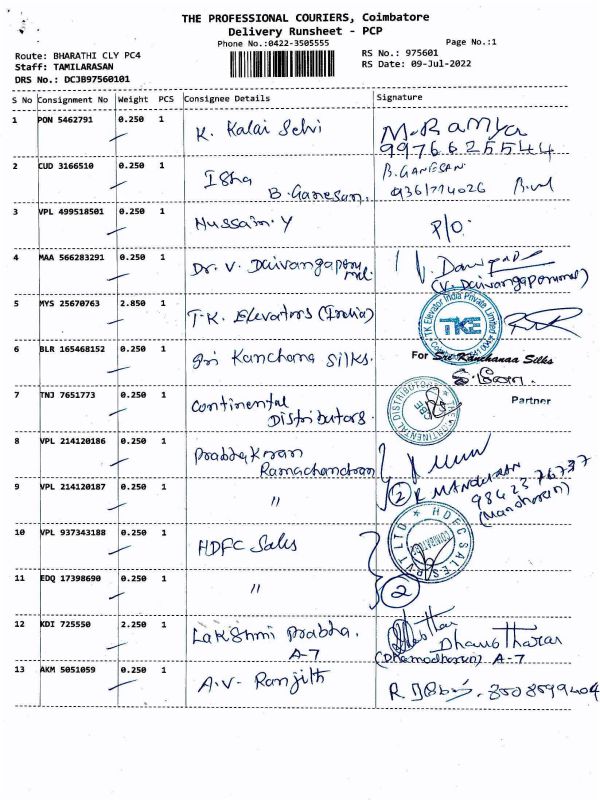 THE PROFESSIONAL COURIERS, Coimbatore
Delivery Runsheet - PCP
Phone No.:0422-3505555
Page No.:1
Route: BHARATHI CLY PC4
Staff: TAMILARASAN
DRS No.: DCJB97560101
RS No.: 975601
RS Date: 09-Jul-2022
S No Consignment No Weight PCS Consignee Details Signature
1 PON 5462791 0.250 1 K. Kalai Selvi M. Ramya
9976625544
2 CUD 3166510 0.250 1 Isha B. GANESAN
B. Ganesan.
3 VPL 499518501 0.250 1 Hussain. Y P/O.
4 MAA 566283291 0.250 1 Dr. V. Daivangaponu
(V. Daivangaponmal)
5 MYS 25670763 2.850 1 T.K. Elevators (India)
TK Elevator India Private Limited
TKE
6 BLR 165468152 0.250 1 Sri Kanchana Silks. For Sri Kanchanaa Silks
Partner
7 TNJ 7651773 0.250 1 Continental
Distributors.
CONTINENTAL DISTRIBUTORS
8 VPL 214120186 0.250 1 Prabhakaran
Ramachandran
9 VPL 214120187 0.250 1 " 2 K MANOHARAN
9842376737
(Manoharan)
10 VPL 937343188 0.250 1 HDFC Sales
HDFC SALES PVT LTD
COIMBATORE
11 EDQ 17398690 0.250 1 " 2
12 KDI 725550 2.250 1 Lakshmi Prabha.
A-7
(Dhamodharan) A-7
13 AKM 5051059 0.250 1 A.V. Ranjith